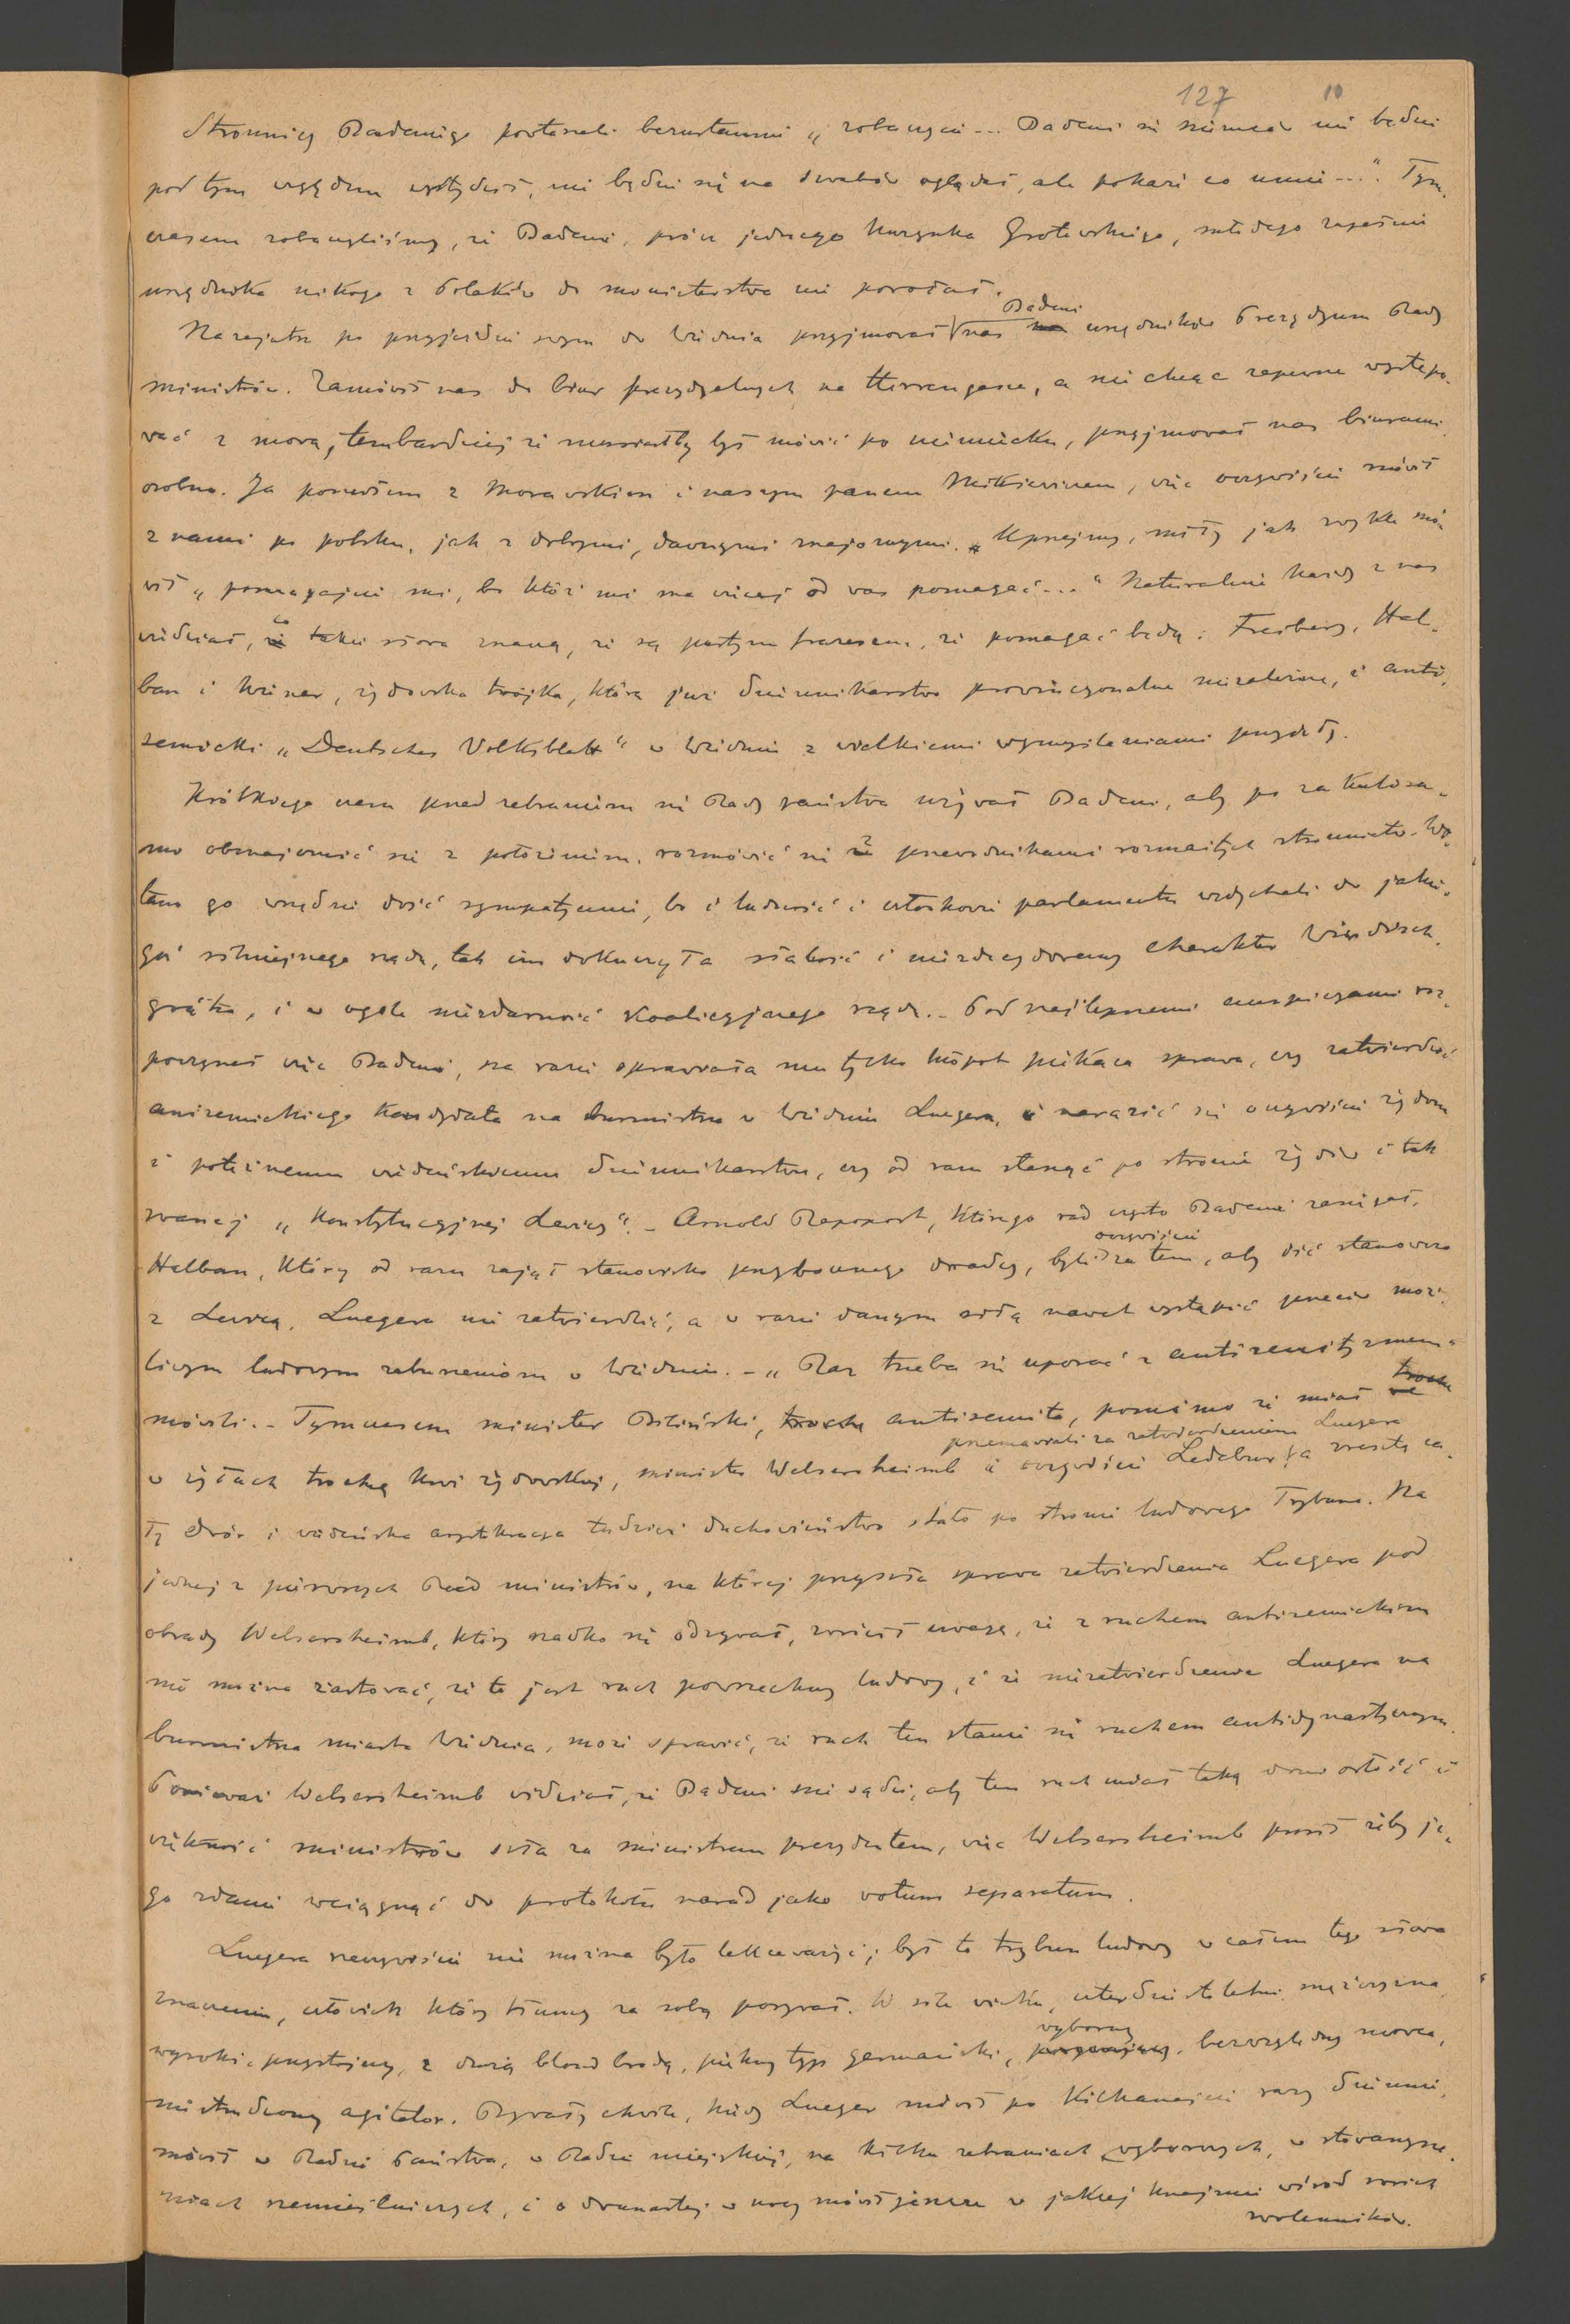 127 10
Stronnicy Badeniego powtarzali bezustannie „zobaczycie... Badeni się niemców nie będzie
pod tym względem wstydził, nie będzie się na szwabów oglądał, ale pokaże co umie...". Tym-
czasem zobaczyliśmy, że Badeni, prócz jednego Kuzynka Grotowskiego, młodego zupełnie
urzędnika nikogo z Polaków do ministerstwa nie powołał.
Nazajutrz po przyjeździe swym do Wiednia przyjmował Badeni nas urzędników Prezydyum Rady
ministrów. Zamówił nas do biur prezydyalnych na Herrengasse, a nie chcąc zapewne występo-
wać z mową, tembardziej że musiałby był mówić po niemiecku, przyjmował nas biurami
osobno. Ja poszedłem z Morawskim i naszym panem Mitkiewiczem, więc oczywiście mówił
z nami po polsku, jak z dobrymi, dawnymi znajomymi. Uprzejmy, miły jak zwykle mó-
wił „pomagajcie mi, bo któż mi ma więcej od was pomagać..." Naturalnie każdy z nas
wiedział, co takie słowa znaczą, że są pustym frazesem, że pomagać będą: Freiberg, Hal-
ban i Wiener, żydowska trójka, którą już dziennikarstwo prowincyonalne niezależne, i anti-
semicki „Deutsches Volksblatt" w Wiedniu z wielkiemi wymyślaniami przyjęły.
Krótkiego czasu przed zebraniem się Rady państwa używał Badeni, aby po za kulisa-
mi obznajomić się z położeniem, rozmówić się z przewodnikami rozmaitych stronnictw. Wi-
tano go wszędzie dość sympatycznie, bo i ludność i członkowie parlamentu wzdychali do jakie-
goś silniejszego rządu, tak im dokuczyła słabość i niezdecydowany charakter Windisch-
grätza, i w ogóle niezdarność koalicyjnego rządu. – Pod najlepszemi auspicyami roz-
poczynał więc Badeni, na razie sprawiała mu tylko kłopot piekąca sprawa, czy zatwierdzić
antisemickiego kandydata na burmistrza w Wiedniu Luegera, i narazić się oczywiście żydom
i potężnemu wiedeńskiemu dziennikarstwu, czy od razu stanąć po stronie żydów i tak
zwanej „Konstytucyjnej Lewicy". – Arnold Rapoport, którego rad często Badeni zasięgał,
Halban, który od razu zajął stanowisko przybocznego doradcy, byli oczywiście za tem, aby iść stanowczo
z Lewicą, Luegera nie zatwierdzić, a w razie danym siłą nawet wystąpić przeciw moż-
liwym ludowym zaburzeniom w Wiedniu. – „Raz trzeba się uporać z antisemityzmem"
mówili. – Tymczasem minister Biliński, trochę antisemita, pomimo że miał
w żyłach trochę krwi żydowskiej, minister Welsersheimb i oczywiście Ledebur przemawiali za zatwierdzeniem Luegera, a zresztą ca-
ły dwór i wiedeńska arystokracya tudzież duchowieństwo stało po stronie ludowego Trybuna. Na
jednej z pierwszych Rad ministrów, na której przyszła sprawa zatwierdzenia Luegera pod
obrady Welsersheimb, który rzadko się odzywał, zwrócił uwagę, że z ruchem antisemickim
nie można żartować, że to jest ruch powszechny ludowy, i że niezatwierdzenie Luegera na
burmistrza miasta Wiednia, może sprawić, że ruch ten stanie się ruchem antidynastycznym.
Ponieważ Welsersheimb widział, że Badeni nie sądzi, aby ten ruch miał taką doniosłość i
większość ministrów szła za ministrem prezydentem, więc Welsersheimb prosił żeby je-
go zdanie wciągnąć do protokołu narad jako votum separatum.
Luegera rzeczywiście nie można było lekceważyć; był to trybun ludowy w całem tego słowa
znaczeniu, człowiek który tłumy za sobą porywał. W sile wieku, czterdziestoletni mężczyzna,
wysoki, przystojny, z dużą blond brodą, piękny typ germański, wyborny, bezwzględny mówca,
niestrudzony agitator. Bywały chwile, kiedy Lueger mówił po kilkanaście razy dziennie,
mówił w Radzie Państwa, w Radzie miejskiej, na kilku zebraniach wyborczych, w stowarzysze-
niach rzemieślniczych, i o dwunastej w nocy mówił jeszcze w jakiej knajpie wśród swoich
zwolenników.